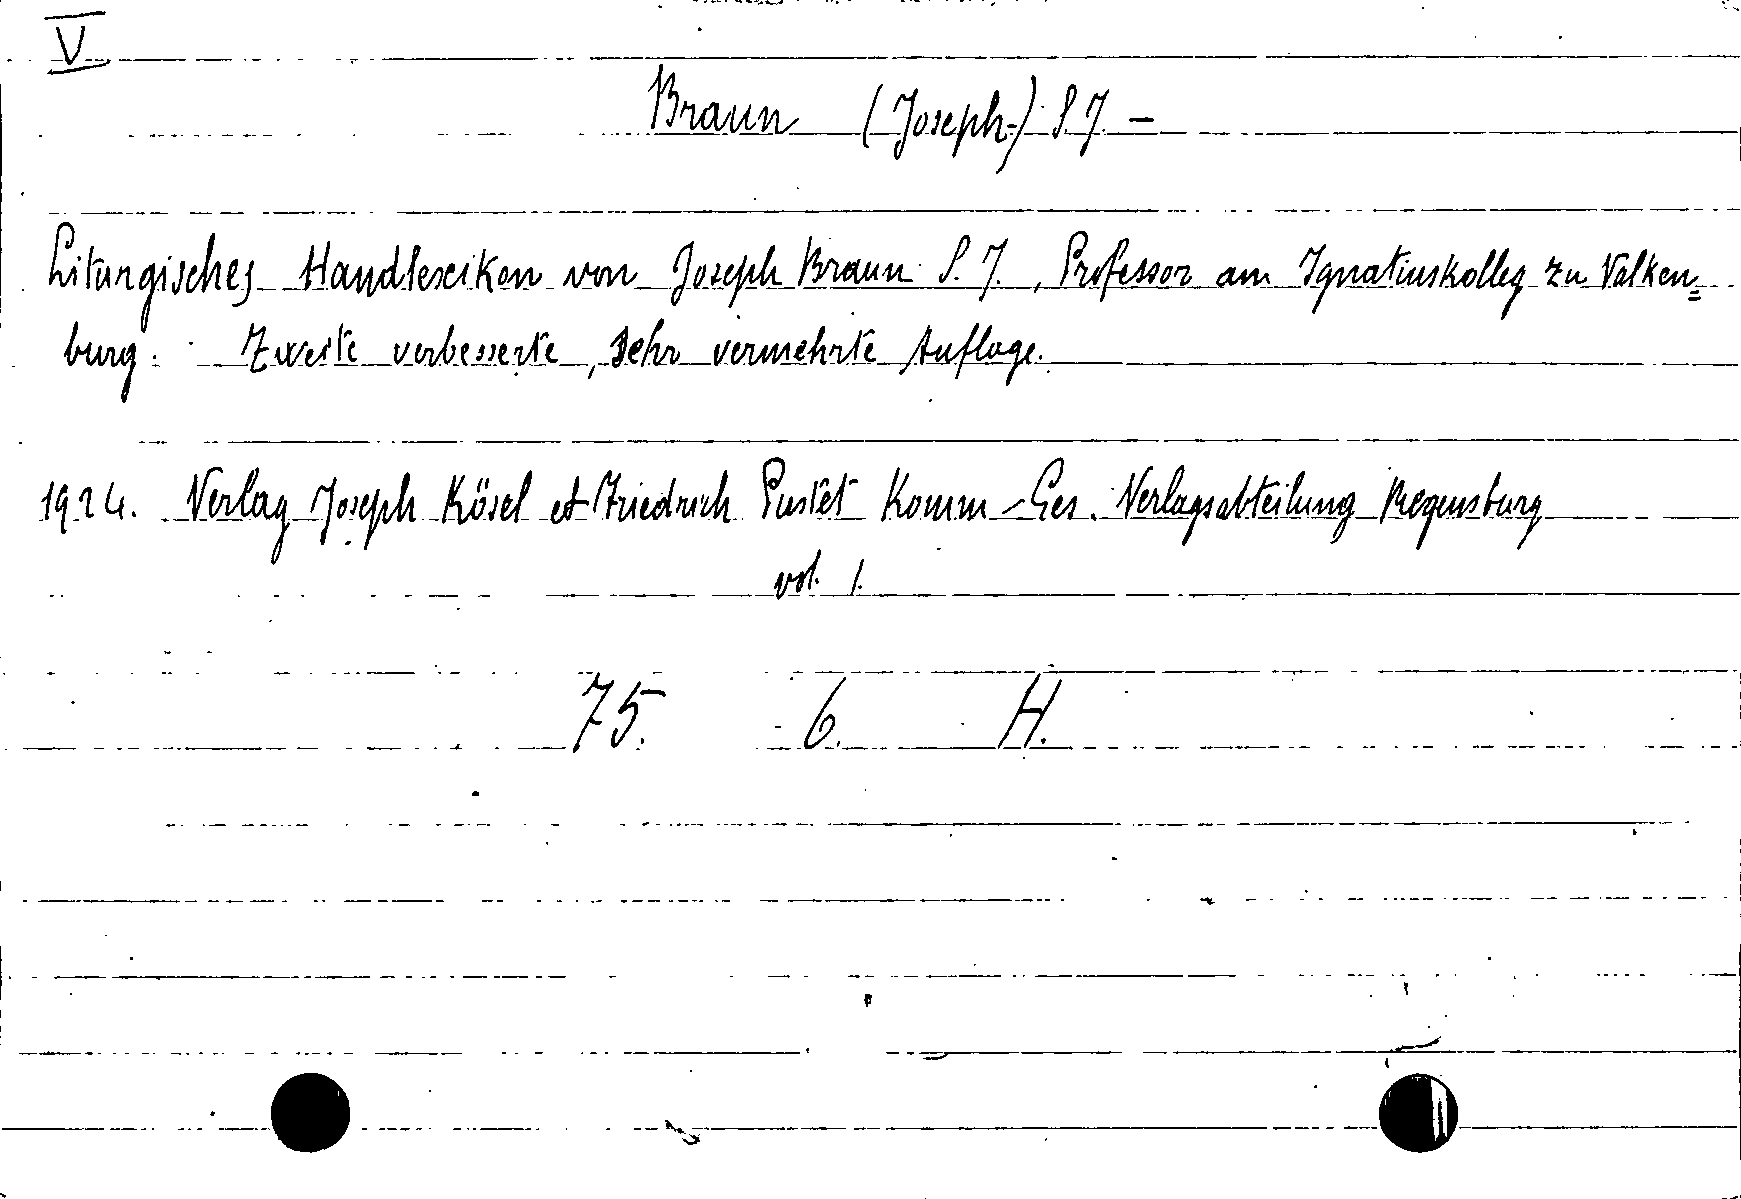 V
Braun (Joseph-) S.J. -
Liturgisches Handlexikon von Joseph Braun S. J., Professor am Ignatiuskolleg zu Valken=
burg. Zweite verbesserte, sehr vermehrte Auflage.
1924. Verlag Joseph Kösel et Friedrich Pustet Komm-Ges. Verlagsabteilung Regensburg
vol. 1.
75. 6. H.